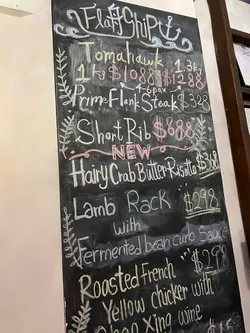 FlagShip
Tomahawk 1.3kg
1kg $1088 $1288
4-6pax
Prime Flank Steak $328
Short Rib $688
NEW
Hairy Crab Butter Risotto $368
Lamb Rack $298
with
Fermented bean curb Sauce
Roasted French $298
Yellow chicken with
Shao Xing wine